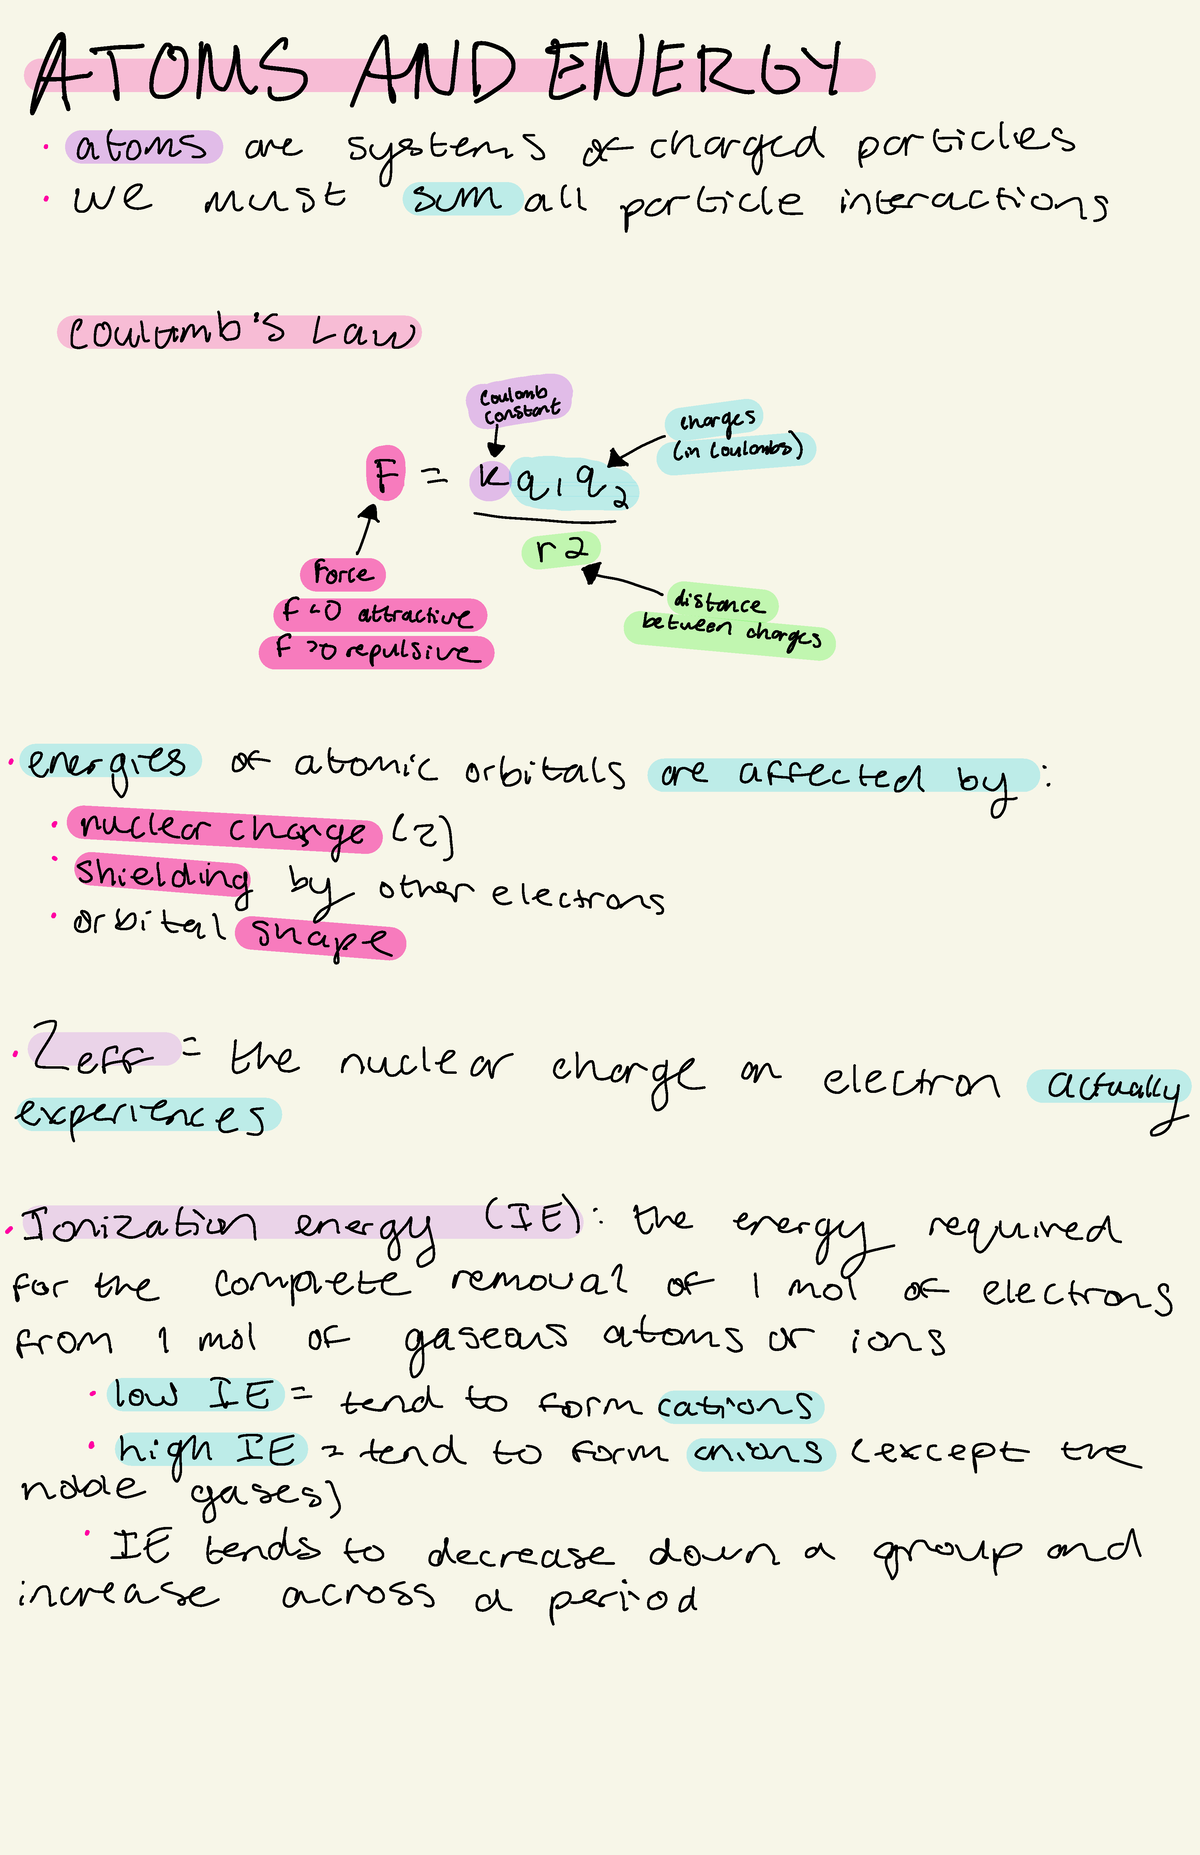 ATOMS AND ENERGY
· atoms are systems of charged particles
· we must sum all particle interactions
Coulomb's Law
Coulomb
constant
charges
(in Coulombs)
F = kq1q2
r2
Force
F<0 attractive
F >0 repulsive
distance
between charges
· energies of atomic orbitals are affected by:
· nuclear charge (Z)
· shielding by other electrons
· orbital shape
· Zeff = the nuclear charge an electron actually
experiences
· Ionization energy (IE): the energy required
for the complete removal of 1 mol of electrons
from 1 mol of gaseous atoms or ions
· low IE = tend to form cations
· high IE = tend to form anions (except the
noble gases)
· IE tends to decrease down a group and
increase across a period